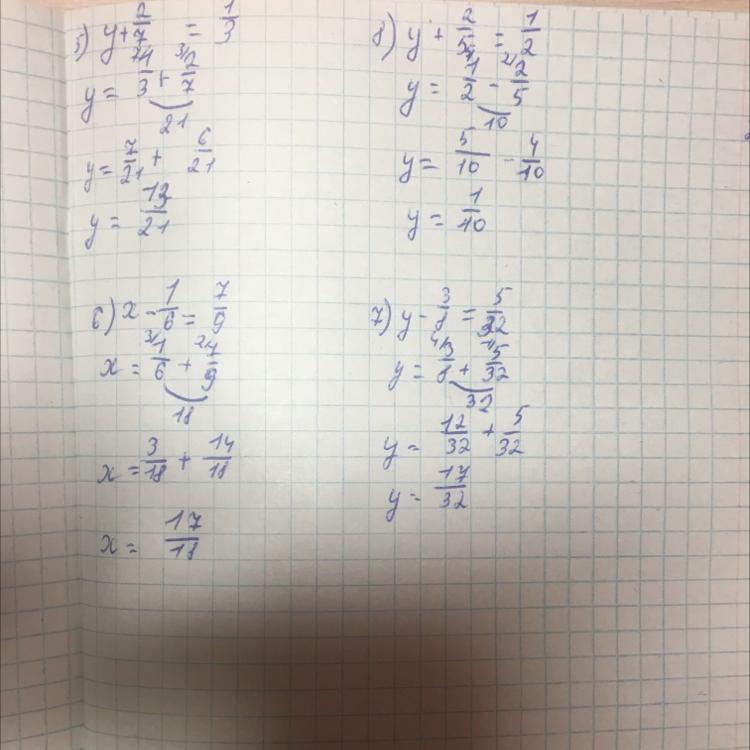 5) y + 2/7 = 1/3
y = 7/ 1/3 + 3/ 2/7
21
y = 7/21 + 6/21
y = 13/21
8) y + 2/5 = 1/2
y = 5/ 1/2 - 2/ 2/5
10
y = 5/10 - 4/10
y = 1/10
6) x - 1/6 = 7/9
x = 3/ 1/6 + 2/ 7/9
18
x = 3/18 + 14/18
x = 17/18
7) y - 3/8 = 5/32
y = 4/ 3/8 + 1/ 5/32
32
y = 12/32 + 5/32
y = 17/32